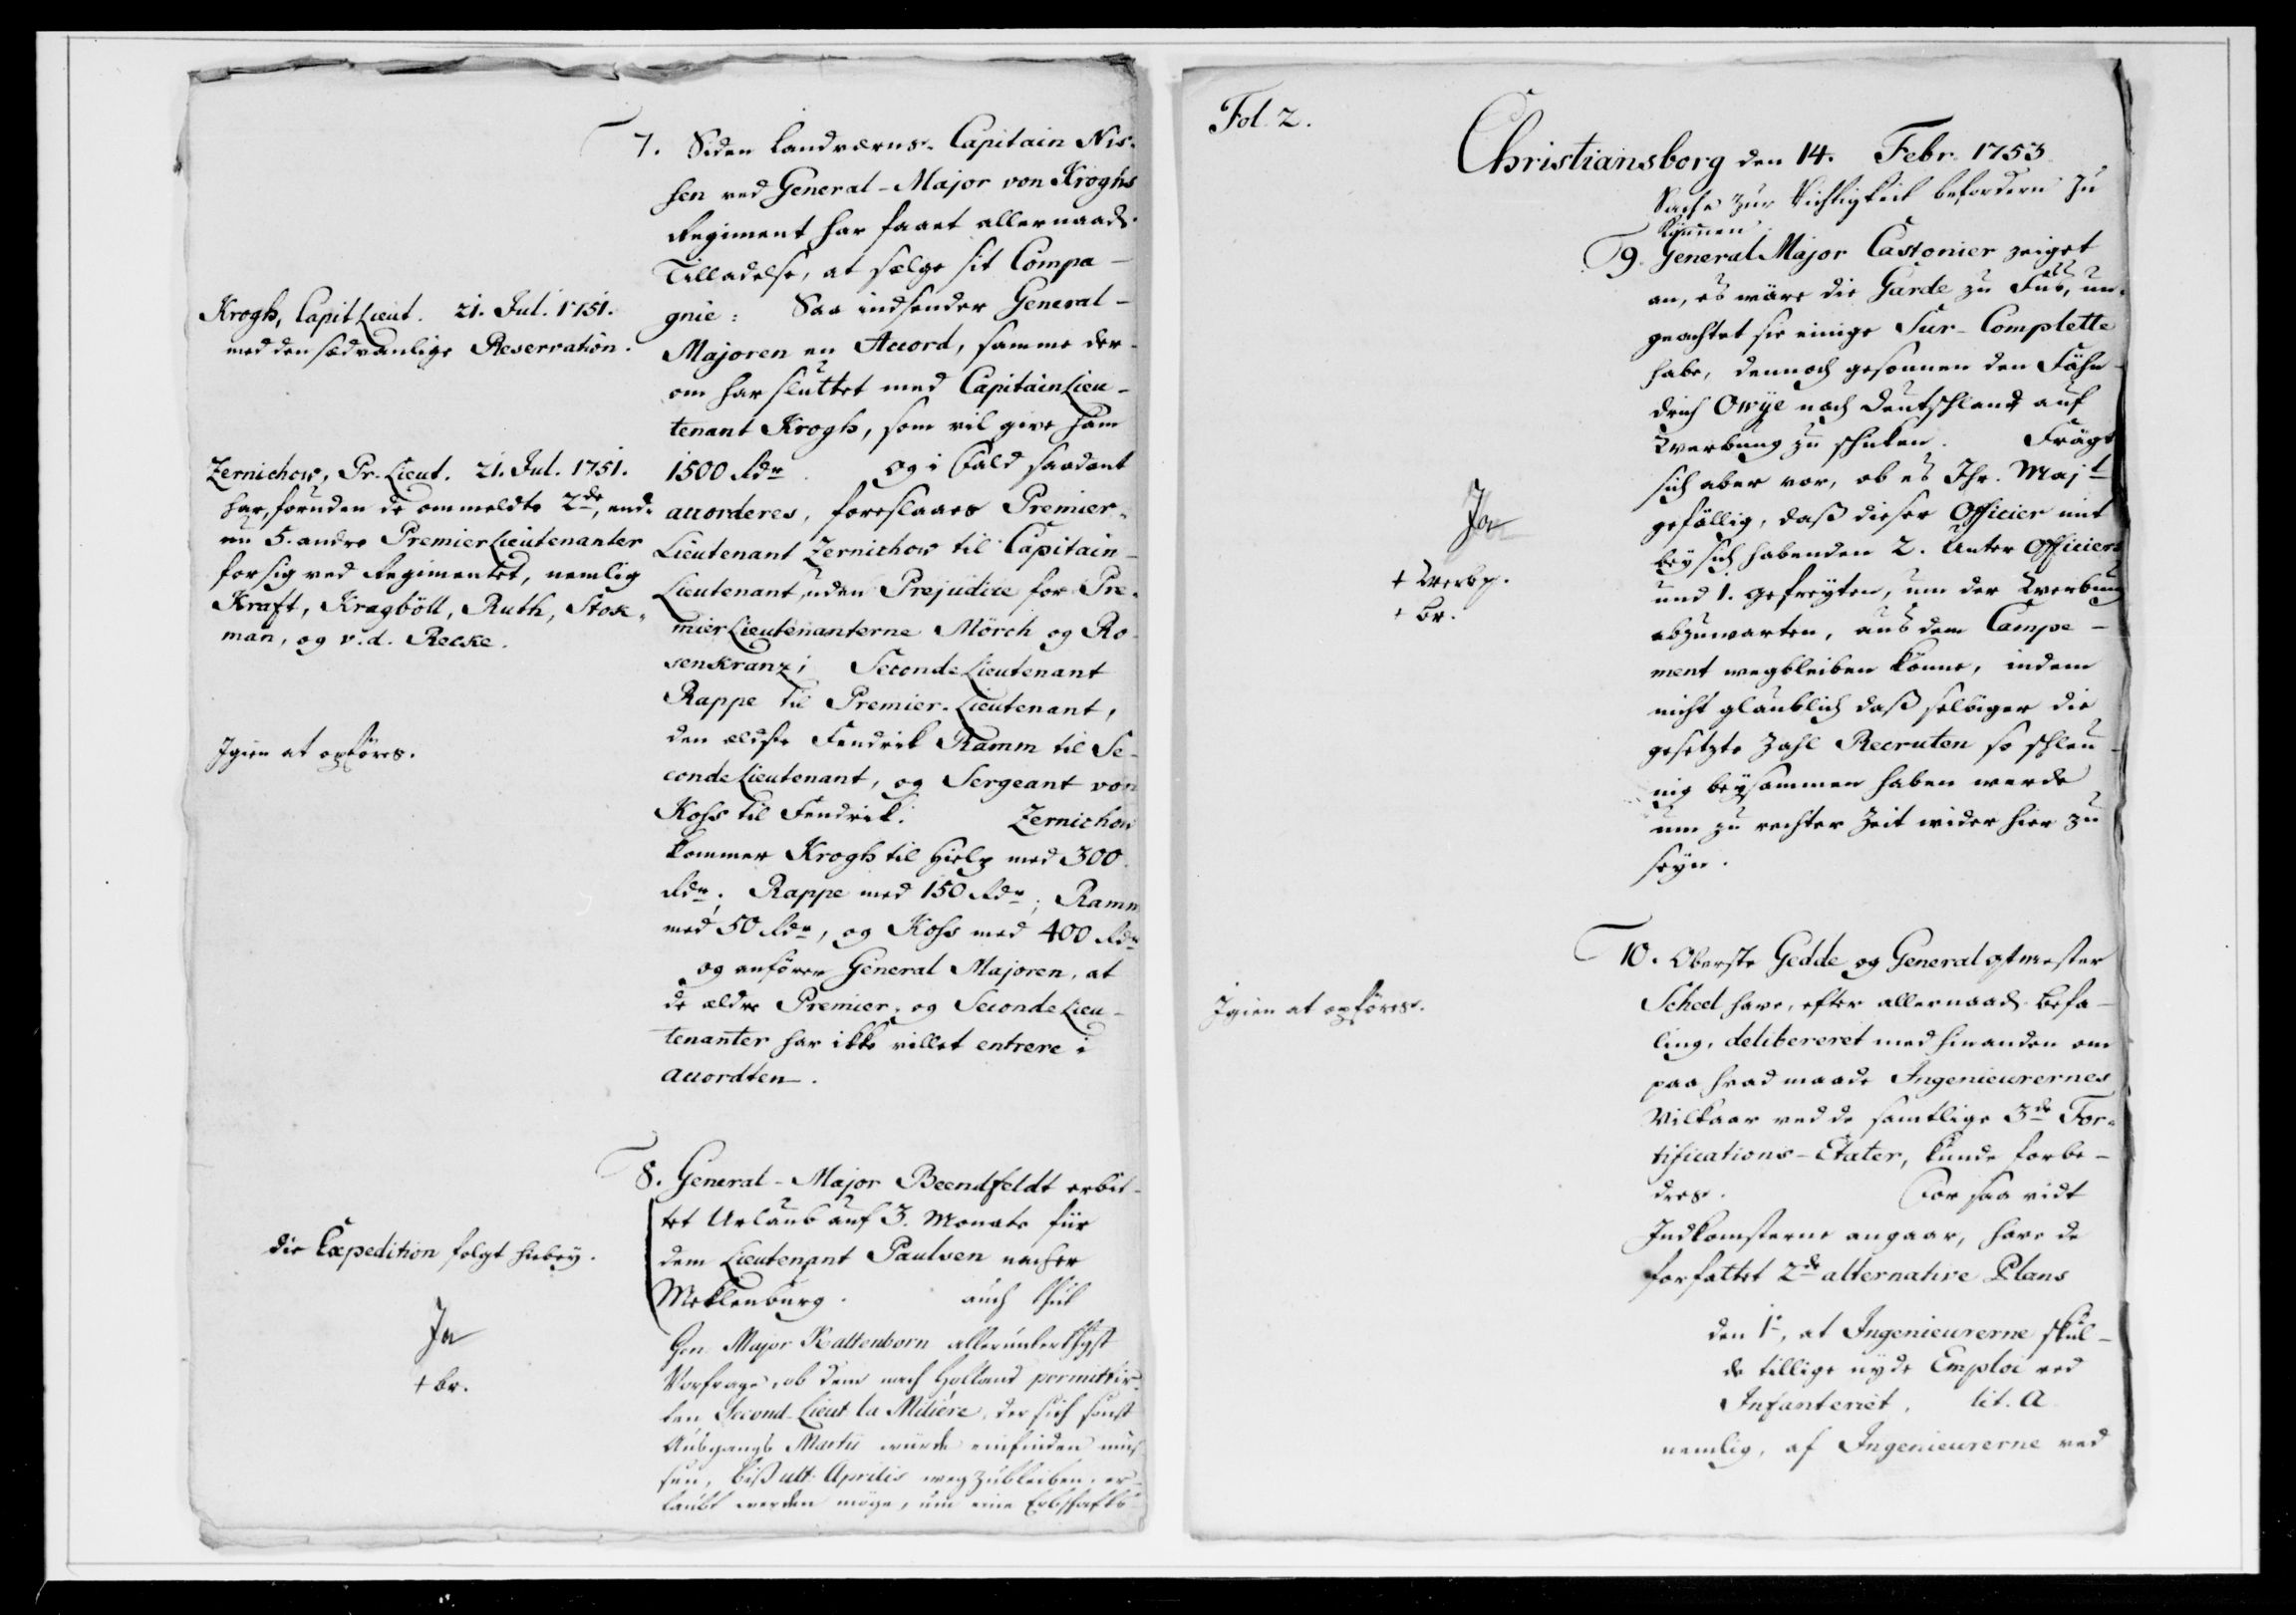 7. Siden Landværns-Capitain Nis-
sen ved General-Major von Kroghs
Regiment har faaet allernaads.
Tilladelse, at sælge sit Compa-
gnie: Saa indsender General-
Majoren en Accord, samme der-
om har sluttet med Capitain Lieu-
tenant Krogh, som vil give ham
1500 Rdr. Og i Fald saadant
accorderes, foreslaaes Premier-
Lieutenant Zernichow til Capitain-
Lieutenant, uden Prejudice for Pre-
mier Lieutenanterne Mörch og Ro-
senkranz; Seconde Lieutenant
Rappe til Premier-Lieutenant,
den ældste Fendrik Ramm til Se-
conde Lieutenant, og Sergeant von
Koss til Fendrik. Zernichow
kommer Krogh til Hielp med 300
Rdr.; Rappe med 150 Rdr; Ramm
med 50 Rdr, og Koss med 400 Rdr
og anförer General Majoren, at
de ældre Premier- og Seconde Lieu-
tenanter har ikke villet entrere i
accordten.
Krogh, Capit Lieut. 21. Jul. 1751.
med den sædvanlige Reservation.
Zernichow, Pr. Lieut. 21. Jul. 1751.
har, foruden de ommeldte 2de, end-
nu 5. andre Premier Lieutenanter
for sig ved Regimentet, nemlig
Kraft, Kragböll, Ruth, Stok-
man, og v. d. Recke.
Igien at opföres.
8. General-Major Beenfeldt erbit-
tet Urlaub auf 3. Monate für
dem Lieutenant Paulsen nacher
Meklenburg. auch thut
Gen. Major Kattenborn allerunterthgst
Vorfrage, ob dem nach Holland permittir-
ten Second-Lieut la Mitiére, der sich sonst
Ausgangs Martii würde einfinden müs-
sen, biß ult. Aprilis wegzubleiben, er-
laubt werden möge, um eine Erbschafts-
die Expedition folgt hiebey.
Ja
+ br.
Fol. 2.
Christiansborg den 14. Febr. 1753
Sache zur Richtigkeit befordern zu
können
9. General Major Castonier zeiget
an, es wäre die Garde zu Fuß, un-
geachtet sie einige Sur-Complette
habe, dennoch gesonnen den Fähn-
drich Owÿe nach Deutschland auf
Werbung zu schicken. Frägt
sich aber vor, ob es Ihr. Majt
gefällig, daß dieser Officier mit
beÿ sich habenden 2. Unter Officiers
und 1. gefreÿten, um der Werbung
abzuwarten, aus dem Campe-
ment wegbleiben könne, indem
nicht glaublich daß selbiger die
gesetzte Zahl Recruten so schleu-
nig beÿsammen haben werde
um zu rechter Zeit wider hier zu
seÿn.
Ja
+ Werbg.
+ br.
10. Oberste Gedde og General qtmester
Scheel have, efter allernaads Befa-
ling, delibereret med hinanden om
paa hvad maade Ingenieurernes
Vilkaar ved de samtlige 3de For-
tifications-Etater, kunde forbe-
dres. For saa vidt
Indkomsterne angaar, have de
forfattet 2de alternative Plans
den 1e, at Ingenieurerne skul-
de tillige nyde Emploi ved
Infanteriet, lit. A
nemlig, af Ingenieurerne ved
Igien at opföres.